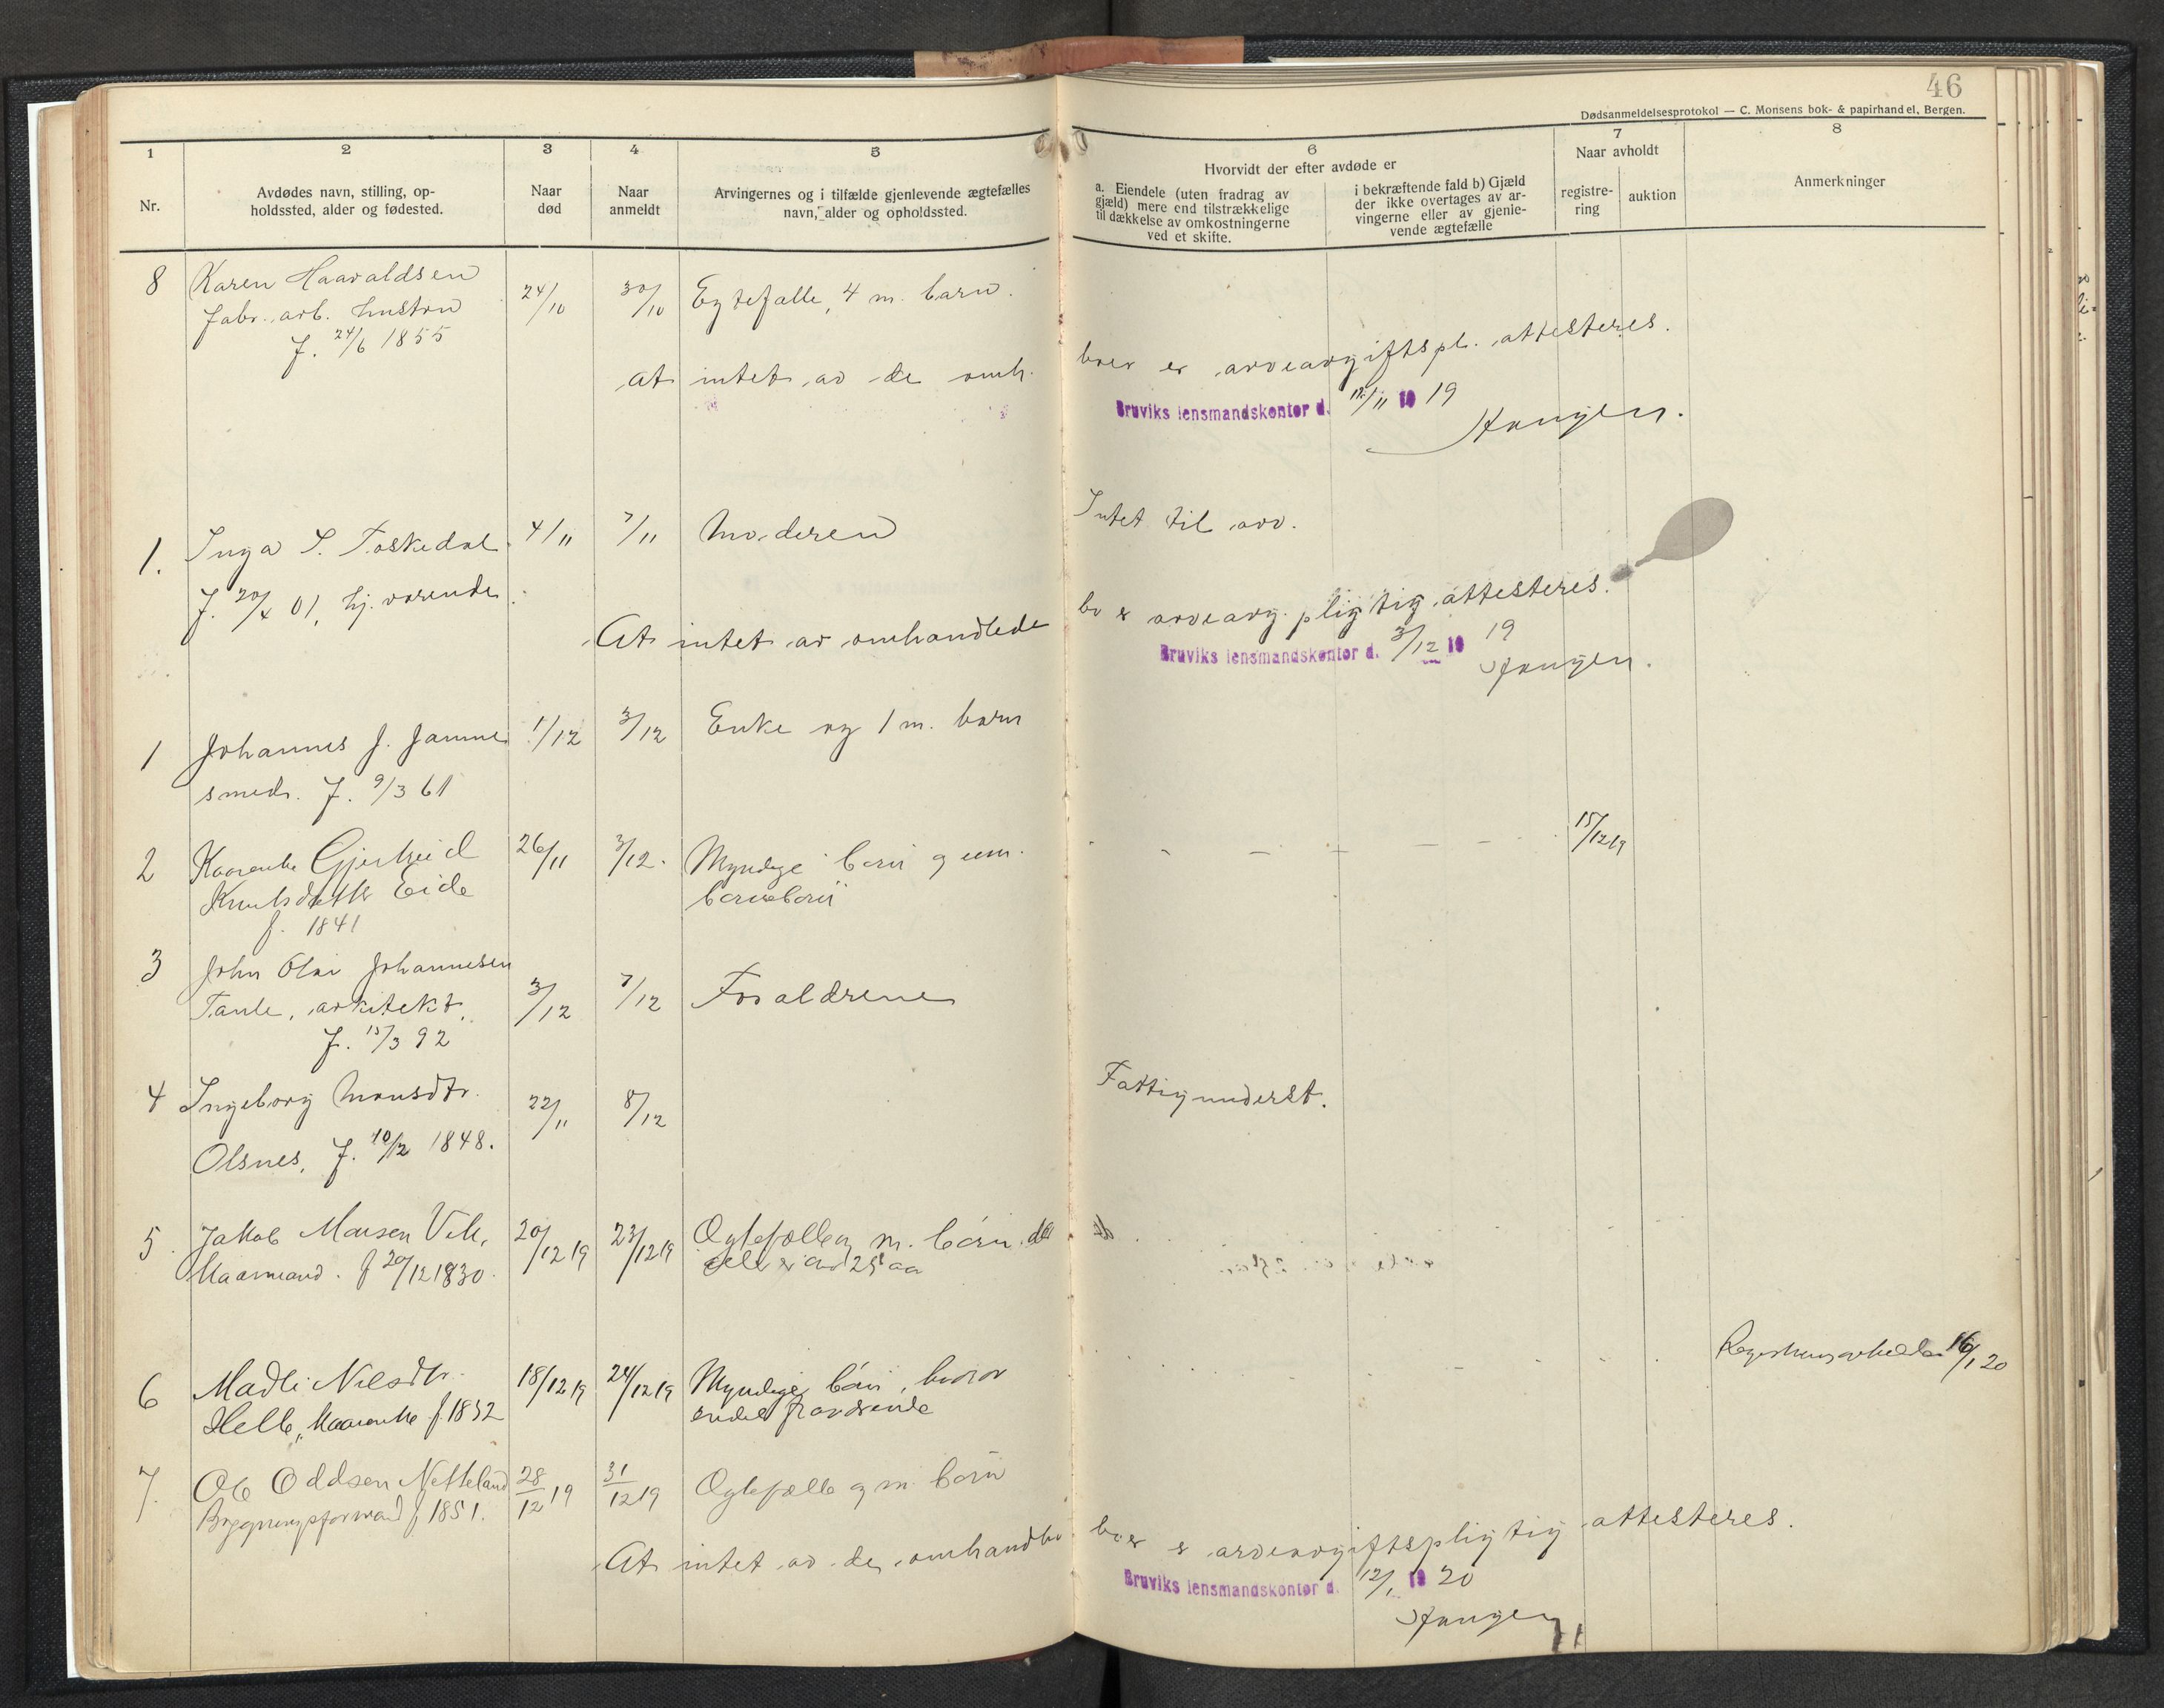 46
Dødsanmeldelsesprotokol — C. Monsens bok- & papirhandel, Bergen.
1 2 3 4 5 6 7 8
Nr.
Avdødes navn, stilling, op-
holdssted, alder og fødested.
Naar
død
Naar
anmeldt
Arvingernes og i tilfælde gjenlevende ægtefælles
navn, alder og opholdssted.
Hvorvidt der efter avdøde er
a. Eiendele (uten fradrag av
gjæld) mere end tilstrækkelige
til dækkelse av omkostningerne
ved et skifte.
i bekræftende fald b) Gjæld
der ikke overtages av ar-
vingerne eller av gjenle-
vende ægtefælle
Naar avholdt
registre-
ring
auktion
Anmerkninger
8 Karen Haavaldsen 24/10 30/10 Egtefælle, 4 m. barn.
fabr. arb. hustru
f. 24/6 1855
At intet av de omh. boer er arveavgiftspl. attesteres.
Bruviks lensmandskontor d. /11 19 19
1. Inga S. Toskedal 4/11 7/11 Moderen Intet til arv.
f. 20/4 01, hj. værende
At intet av omhandlede bo er arveavg. pligtig attesteres.
Bruviks lensmandskontor d. 3/12 19 19
1 Johannes J. Jamne 1/12 3/12 Enke og 1 m. barn
smed. f. 9/3 61
2 Kaarenke Gjertrud 26/11 3/12. Myndige børn og um. 15/12 19
Knutsdatter Eide børnebørn
f. 1841
3 John Olai Johannesen
Tanle, arkitekt, 3/12 7/12 Forældrene
f. 15/3 92
4 Ingeborg Monsdtr. 22/11 8/12 Fattigunderst.
Olsnes, f. 10/12 1848.
5. Jakob Monsen Vik, 20/12 19 23/12 19 Ægtefælle og m. børn
Kaarmand. f 20/12 1830.
6 Madli Nilsdtr. 18/12 19 24/12 19 Myndige børn, hvorav 16/1 20
Helle, Kaarenke f. 1832 endel fraværende
7. Ole Oddsen Netteland 28/12 19 31/12 19 Ægtefælle og m. børn
f 1851.
At intet av de omhandlede boer er arveavgiftspligtig attesteres.
Bruviks lensmandskontor d. 12/1 19 20